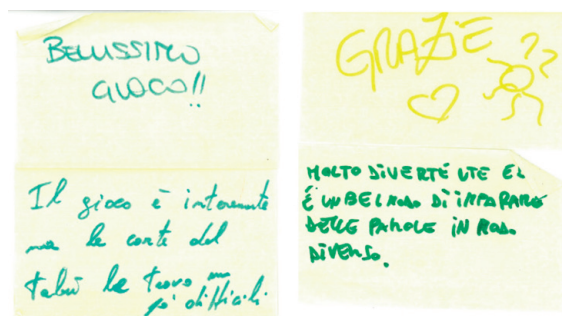 BELLISSIMO
GIOCO!!
Il gioco è interessante
ma le carte del
tabù le trovo un
pó difficili
GRAZIE
??
MOLTO DIVERTÉ UTE EL
É UN BEL MODO DI IMPARARE
DELLE PAROLE IN MODO
DIVERSO.